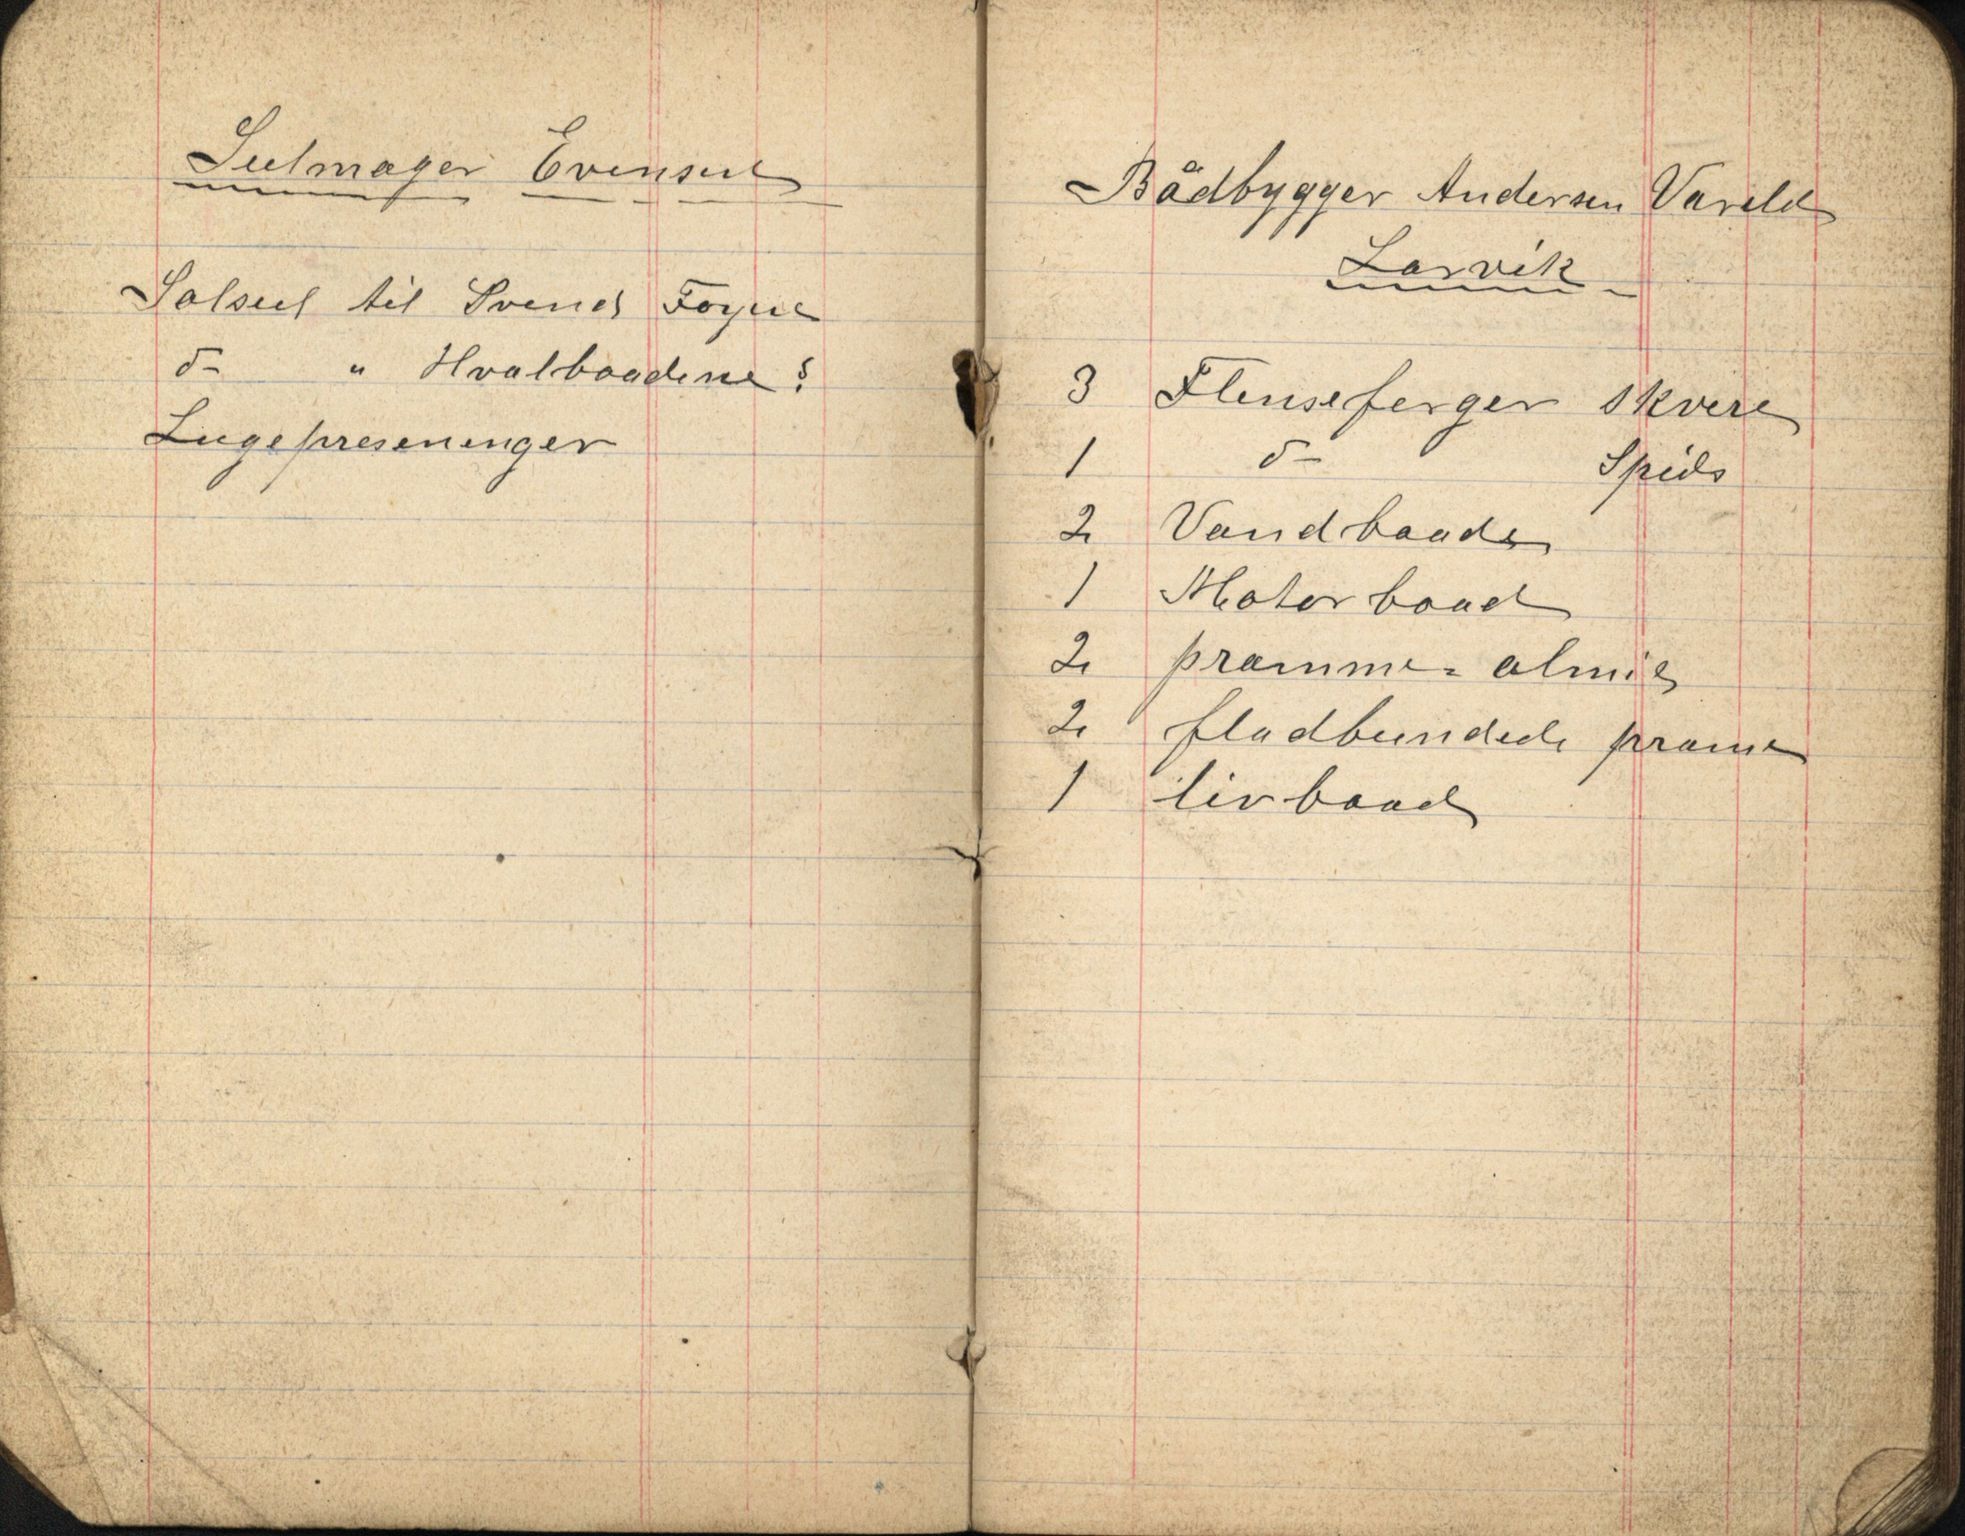 Seilmager Evensen
Solseil til Svend Foyne
do " Hvalbaadene:
Lugepreseninger
Bådbygger Andersen Vareld
Larvik
3 Flenseferger skvere
1 do Spids
2 Vandbaade
1 Motorbaad
2 pramme - almi
2 fladbundede prame
1 livbaad